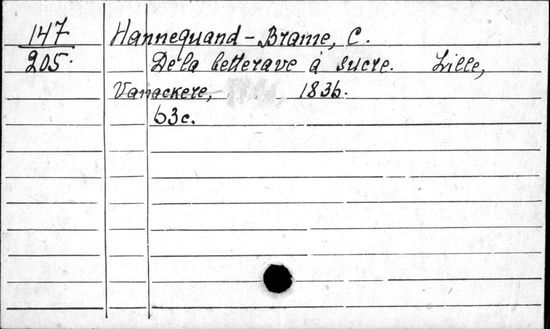 147 Hannequand-Brame, C.
205. De la betterave à sucre. Lille,
Vanackere, 1836.
63 c.